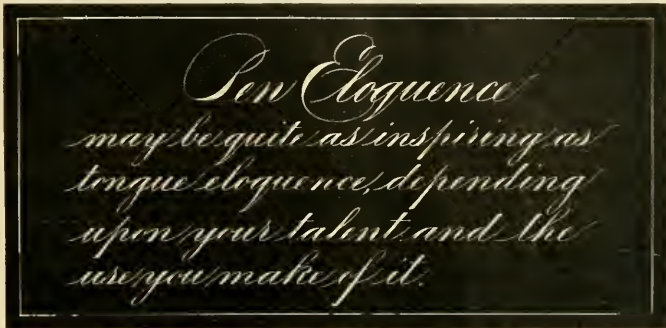 Pen Eloquence
may be quite as inspiring as
tongue eloquence, depending
upon your talent and the
use you make of it.